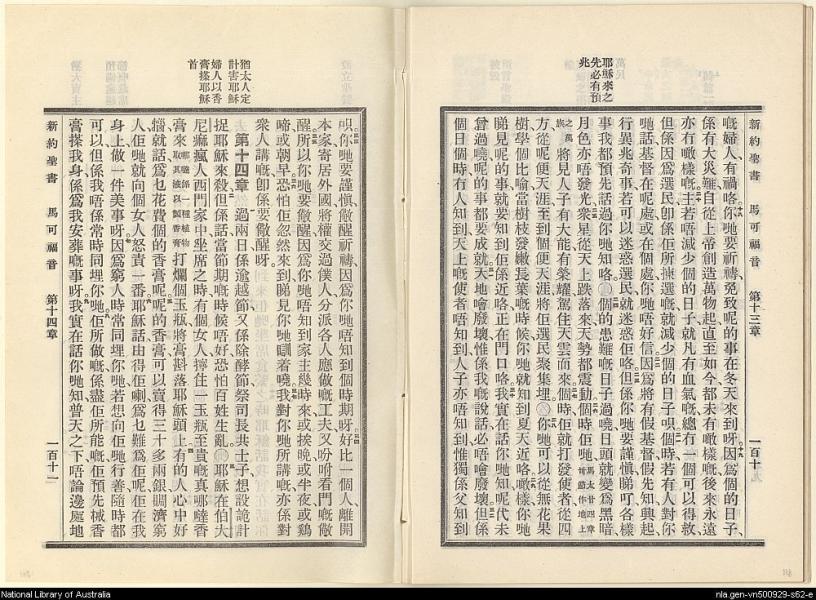 新約聖書 馬可福音 第十三章 一百十
嘅婦人、有禍咯、你哋要祈禱、免致呢的事在冬天來到呀、因爲個的日子、
係有大災難、自從上帝創造萬物起、直至如今、都未有噉樣嘅、後來永遠
亦冇噉樣嘅、主若唔減少個的日子、就凡有血氣嘅、總冇一個可以得救、
但係因爲選民、卽係佢所揀選嘅、就減少個的日子、嗰個時若有人對你
哋話、基督在呢處、或在個處、你哋唔好信、因爲將有假基督假先知興起、
行異兆奇事、若可以迷惑選民、就迷惑佢咯、但係你哋要謹愼、睇吓各樣
事、我都預先話過你哋知咯、〇個的患難嘅日子過嘵、日頭就變爲黑暗、
月色亦唔發光、衆星從天上跌落來、天勢都震動、個時佢哋馬太廿四章卅節作地上
之萬族將見人子有大能有榮耀、駕住天雲而來、個時佢就打發使者從四
方、從呢便天涯、至到個便天涯、將佢選民聚集埋、〇你哋可以從無花果
樹學個比喻、當樹枝發嫩長葉嘅時候、你哋就知到夏天近咯、噉樣你哋
睇見呢的事、就要知到佢係近咯、正在門口咯、我實在話你哋知、呢代未
曾過嘵、呢的事都要成就、天地噲廢壞、惟係我嘅說話、必唔噲廢壞、但係
個日個時、冇人知到、天上嘅使者唔知到、人子亦唔知到、惟獨係父知到
耶穌來之
先必有預
兆
呮、你哋要謹愼、儆醒祈禱、因爲你哋唔知到個時期呀、好比一個人、離開
本家、寄居外國、將權交過僕人、分派各人應做嘅工夫、又吩咐看門嘅儆
醒、所以你哋要儆醒、因爲你哋唔知到家主幾時來、或挨晚、或半夜、或鷄
啼、或朝早、恐怕佢忽然來到、睇見你哋瞓着嘵、我對你哋所講嘅、亦係對
衆人講嘅、卽係要儆醒呀。
第十四章 過兩日、係逾越節、又係除酵節、祭司長共士子、想設詭計
捉耶穌來殺、但係話、當節期嘅時候唔好、恐怕百姓生亂、〇耶穌在伯大
尼、痲瘋人西門家中、坐席之時、有個女人、擰住一玉瓶至貴嘅眞哪噠香
膏來、哪噠係一種植物取其液以製香膏打爛個玉瓶、將膏斟落耶穌頭上、有的人心中好
惱、就話、爲乜花費個的香膏呢、呢的香膏、可以賣得三十多兩銀、賙濟窮
人、佢哋就向個女人怒責一番、耶穌話、由得佢喇、爲乜難爲佢呢、佢在我
身上做一件美事呀、因爲窮人時常同埋你哋、若想向佢哋行善、隨時都
可以、但係我唔係常時同埋你哋、佢所做嘅、係盡佢所能嘅、佢預先械香
膏搽我身、係爲我安葬嘅事呀、我實在話你哋知、普天之下、唔論邊處地
猶太人定
計害耶穌
婦人以香
膏搽耶穌
首
新約聖書 馬可福音 第十四章 一百十一